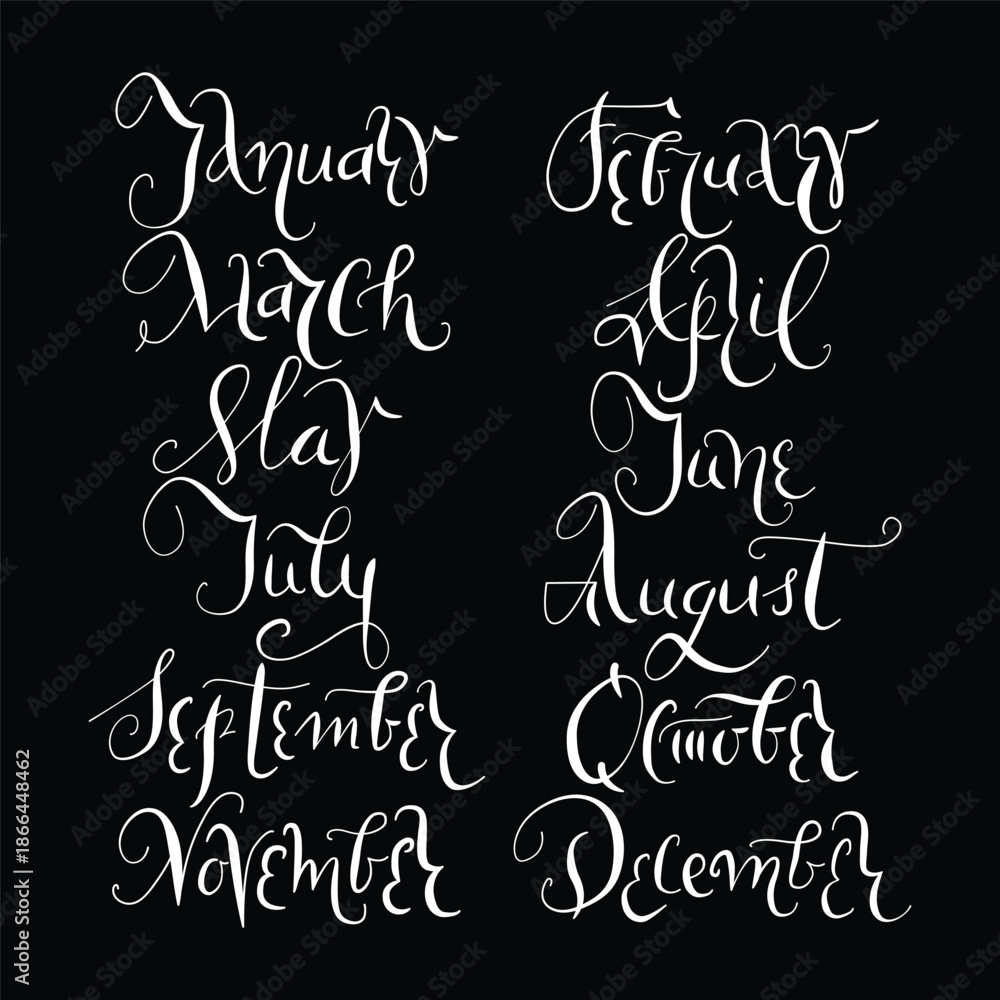 January February
March April
May June
July August
September October
November December
Adobe Stock | #1866448462